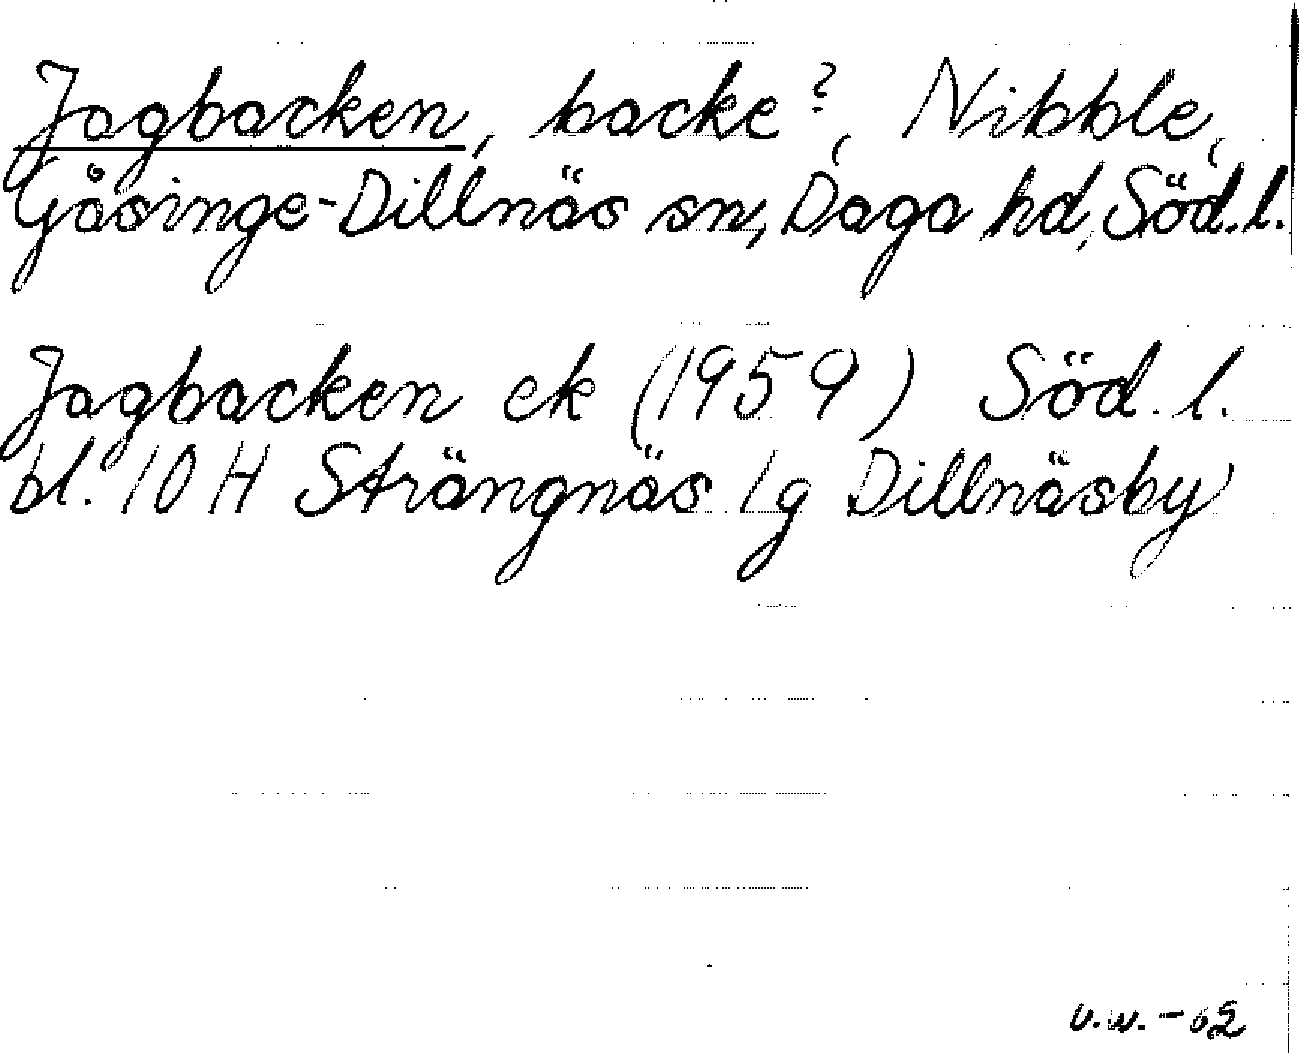 Jagbacken, backe?, Nibble,
Gåsinge-Dillnäs sn, Daga hd, Söd.l.
Jagbacken ek (1959) Söd. l.
bl. 10 H Strängnäs 1g Dillnäsby
U.W. - 62